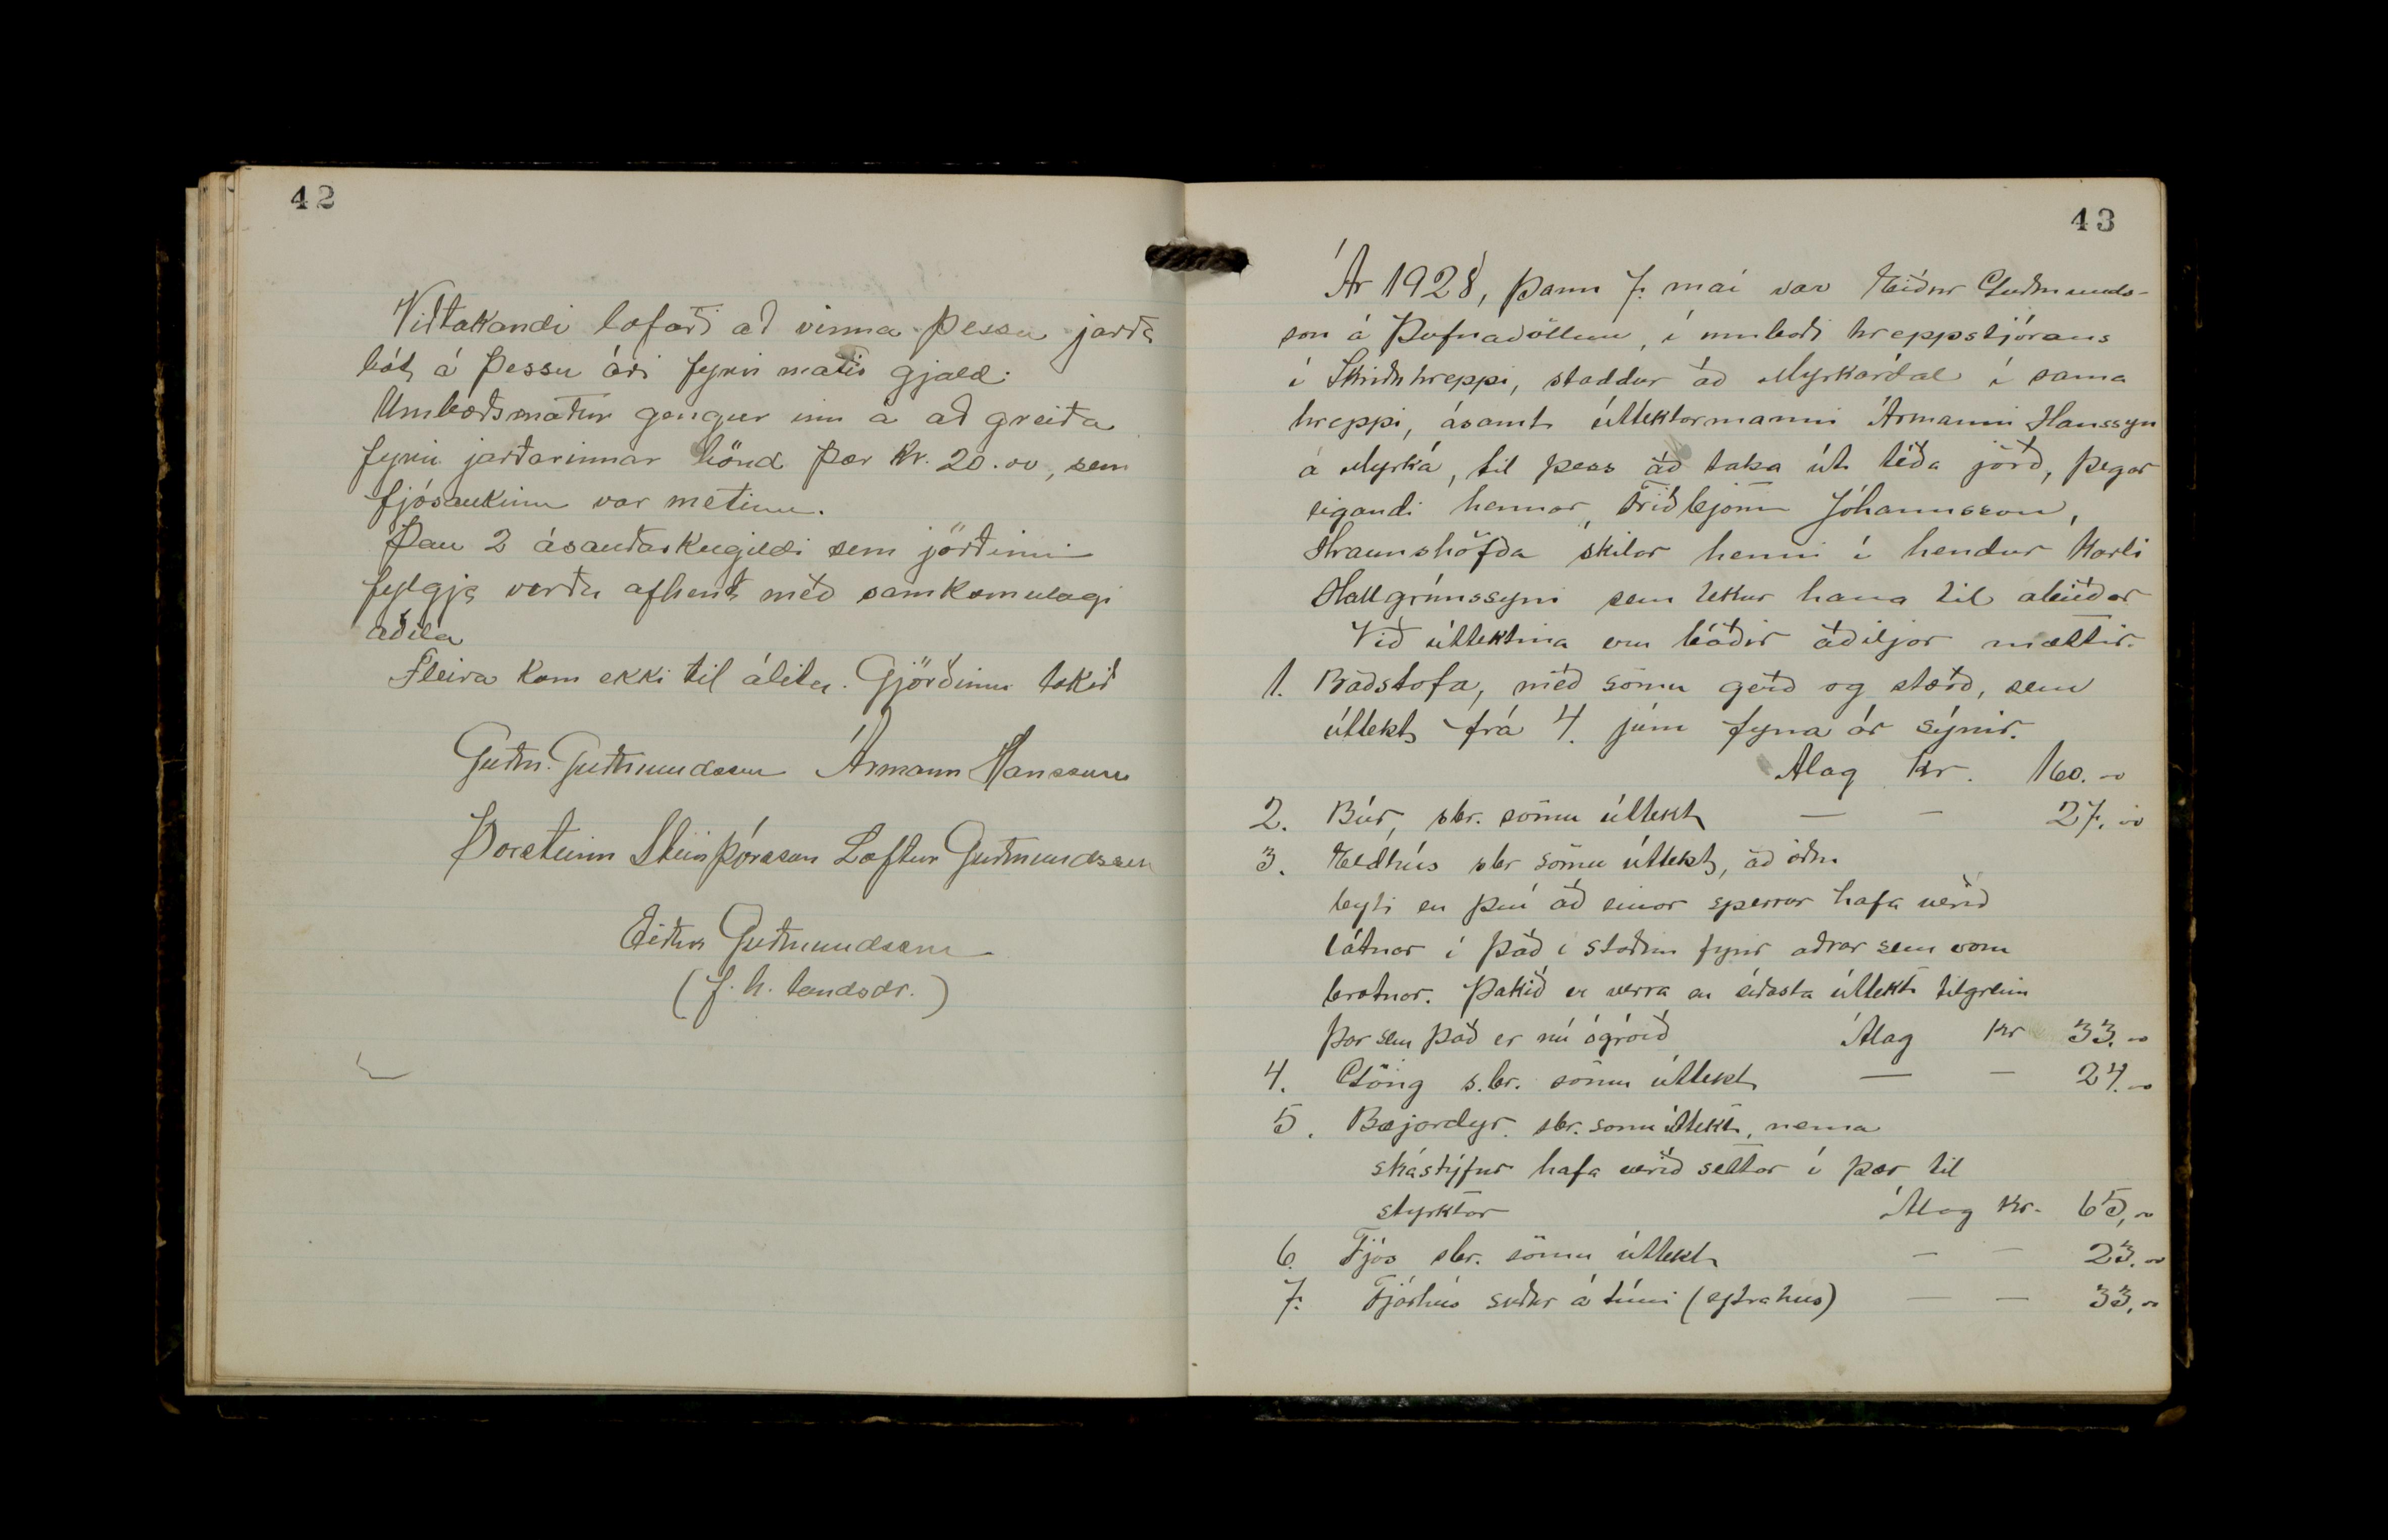 42
Viðtakandi lofaði að vinna þessa jarða
bót á þessu ári fyrir matið gjald.
Umboðsmaður gengur inn á að greiða
fyrir jarðarinnar hönd þær kr. 20.00, sem
fjósaukinn var metinn.
Þau 2 ásauðarkúgildi sem jörðinni
fylgja verða afhent með samkomulagi
aðila
Fleira kom ekki til álita. Gjörðinni lokið
Guðm. Guðmundsson Ármann Hansson
Þorsteinn Steinþórsson Loftur Guðmundsson
Eiður Guðmundsson
(f. h. landsdr.)
43
Ár 1928, þann 7. maí var Eiður Guðmunds-
son á Þúfnavöllum, í umboði hreppstjórans
í Skriðuhreppi, staddur að Myrkárdal í sama
hreppi, ásamt úttektarmanni Ármanni Hanssyni
á Myrká, til þess að taka út téða jörð, þegar
eigandi hennar, Friðbjörn Jóhannsson,
Hraunshöfða skilar henni í hendur Karli
Hallgrímssyni sem tekur hana til ábúðar
Við úttektina eru báðir aðiljar mættir.
1. Baðstofa, með sömu gerð og stærð, sem
úttekt frá 4. júní fyrra ár sýnir.
Álag kr. 160.00
2. Búr, sbr. sömu úttekt — - 27.00
3. Eldhús sbr sömu úttekt, að öðru
leyti en því að einar sperrur hafa verið
látnar í það í staðin fyrir aðrar sem voru
brotnar. Þakið er verra en síðasta úttekt tilgreinir
þar sem það er nú ógróið Álag kr 33.00
4. Göng s.br. sömu úttekt — - 24.00
5. Bæjardyr sbr. sömu úttekt, nema
skástýfur hafa verið settar í þær til
styrktar Álag kr. 65,00
6. Fjós sbr. sömu úttekt - - 23.00
7. Fjárhús suður á túni (syðra hús) — - 33,00